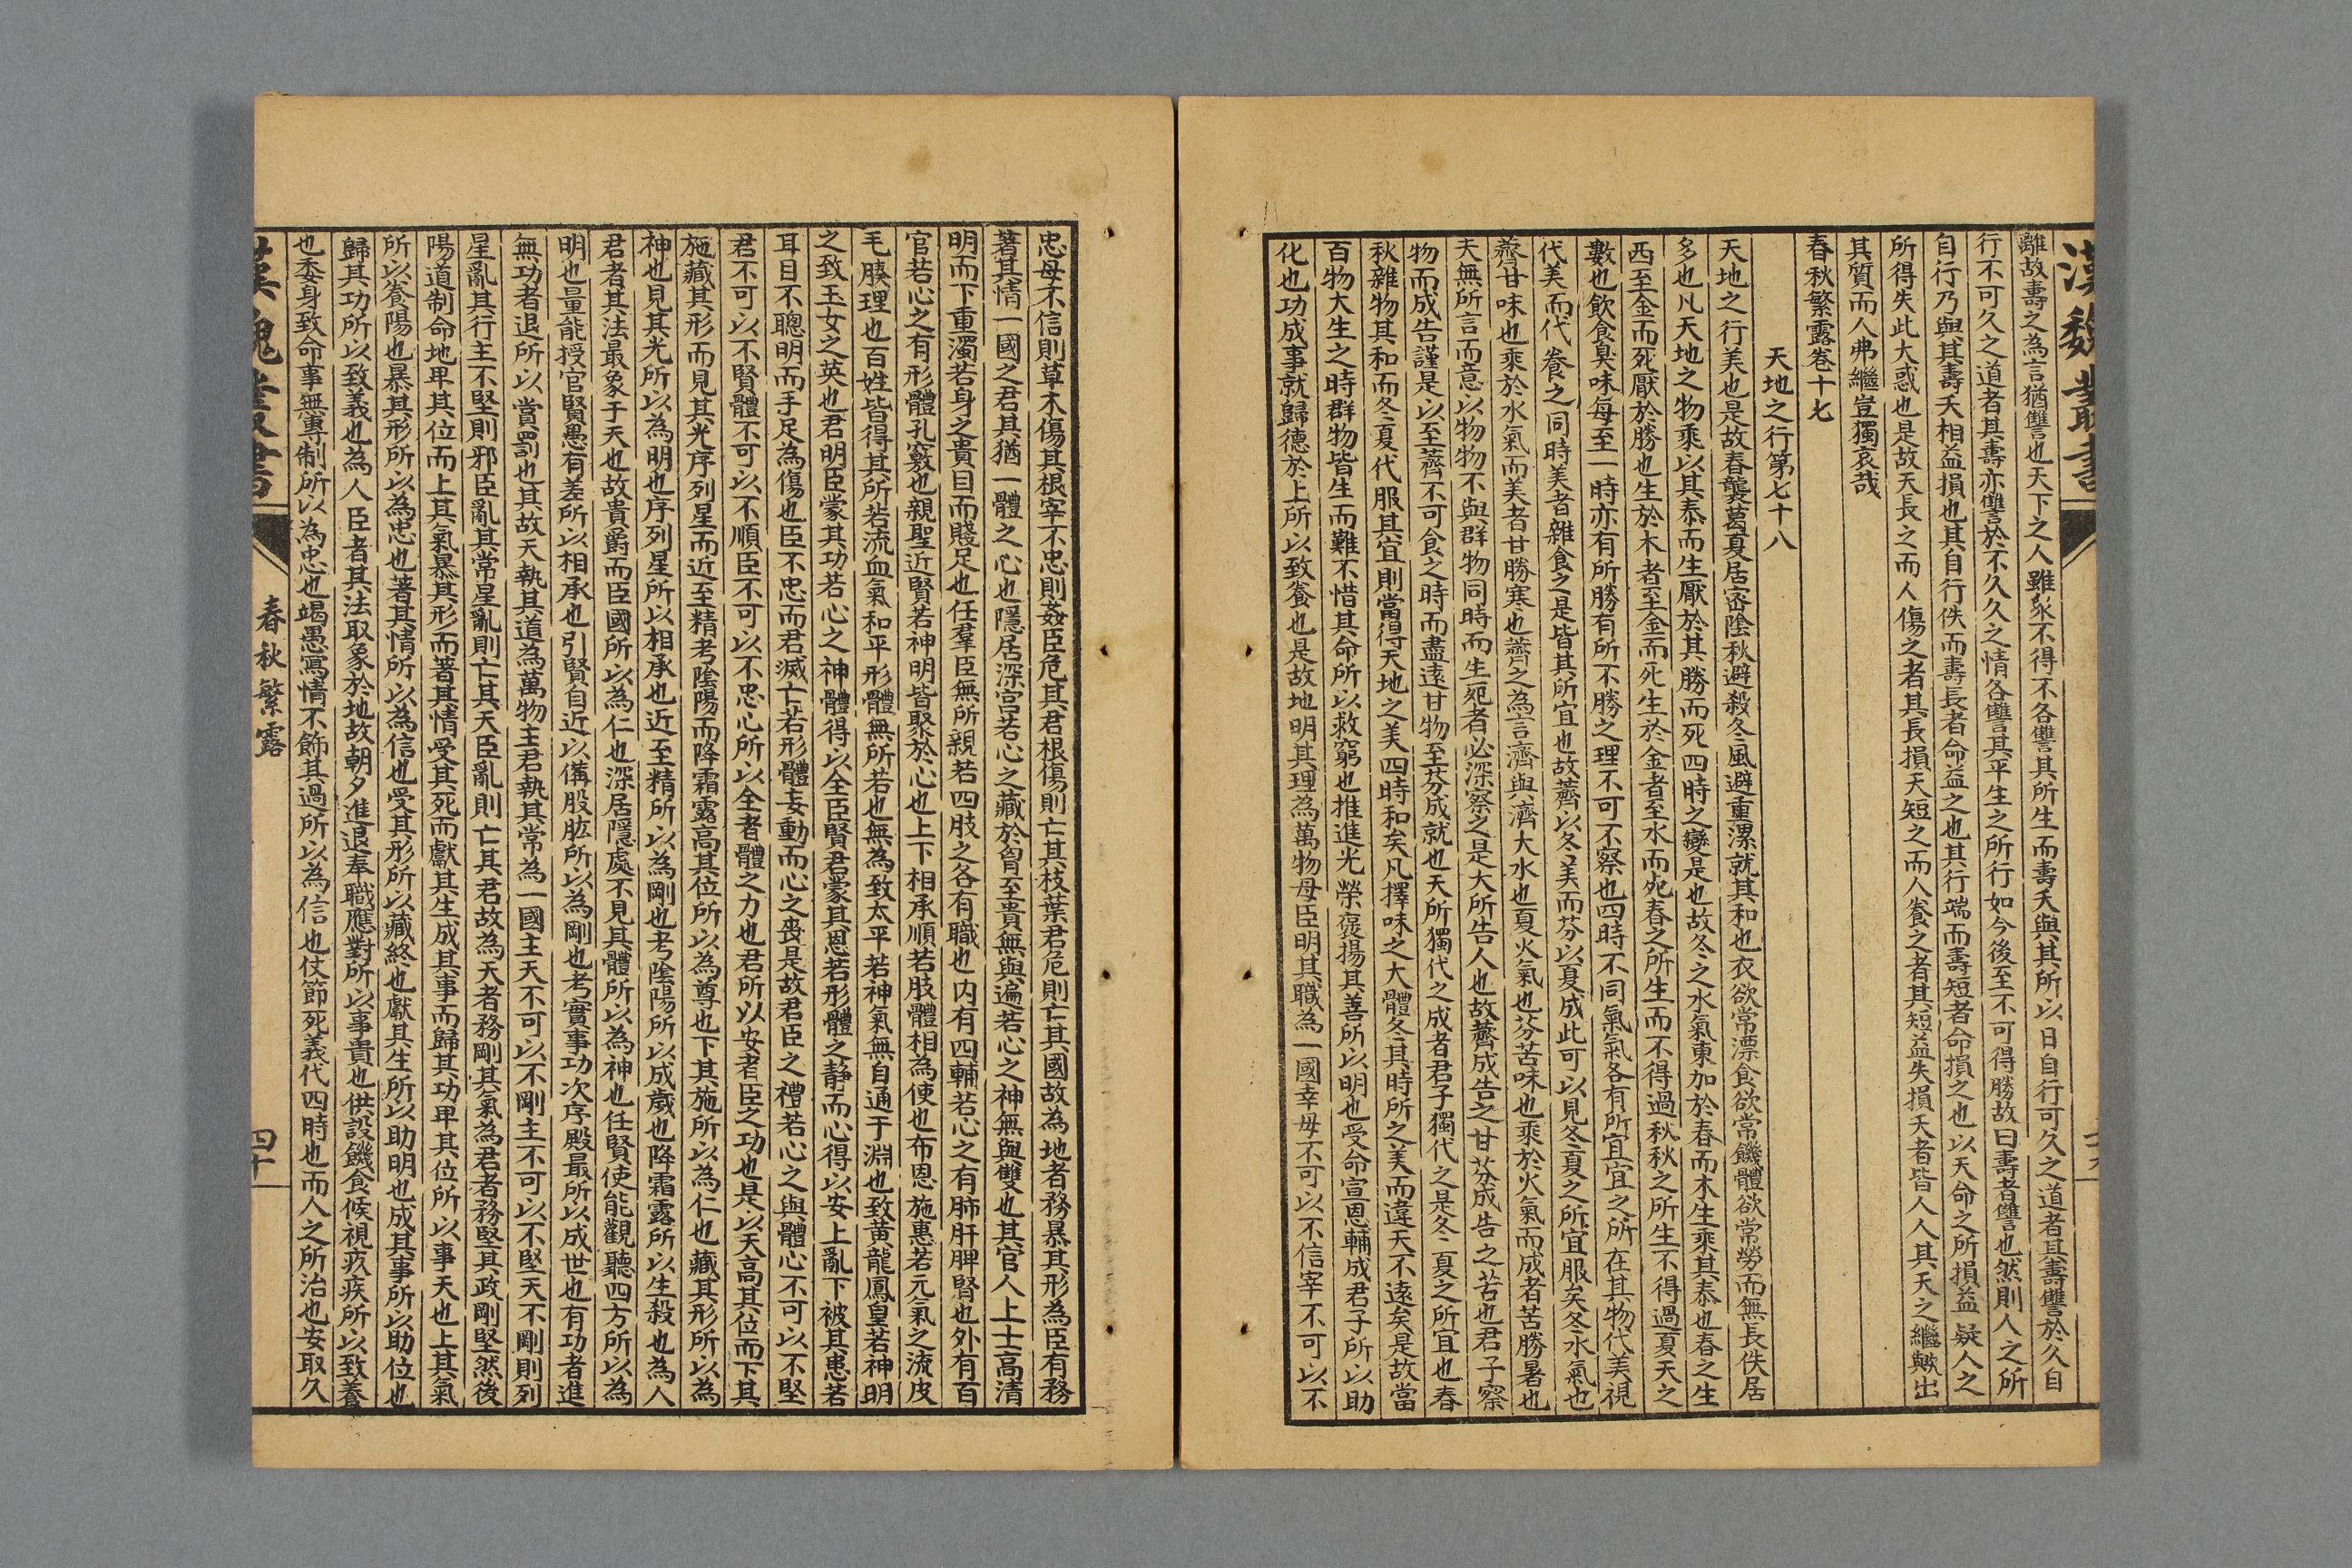 漢魏叢書
離故壽之為言猶讐也天下之人雖衆不得不各讐其所生而壽夭與其所以日自行可久之道者其壽讐於久自
行不可久之道者其壽亦讐於不久久之情各讐其平生之所行如今後至不可得勝故曰壽者讐也然則人之所
自行乃與其壽夭相益損也其自行佚而壽長者命益之也其行端而壽短者命損之也以天命之所損益疑人之
所得失此大惑也是故天長之而人傷之者其長損天短之而人養之者其短益夫損夭者皆人人其天之繼歟出
其質而人弗繼豈獨哀哉
春秋繁露卷十七
天地之行第七十八
天地之行美也是故春襲葛夏居密陰秋避殺冬風避重漯就其和也衣欲常漂食欲常饑體欲常勞而無長佚居
多也凡天地之物乘以其泰而生厭於其勝而死四時之變是也故冬之水氣東加於春而木生乘其泰也春之生
西至金而死厭於勝也生於木者至金而死生於金者至水而死春之所生而不得過秋秋之所生不得過夏天之
數也飲食臭味每至一時亦有所勝有所不勝之理不可不察也四時不同氣氣各有所宜宜之所在其物代美視
代美而代養之同時美者雜食之是皆其所宜也故薺以冬美而芬以夏成此可以見冬夏之所宜服矣冬水氣也
薺甘味也乘於水氣而美者甘勝寒也薺之為言濟與濟大水也夏火氣也芬苦味也乘於火氣而成者苦勝暑也
天無所言而意以物物不與群物同時而生死者必深察之是大所告人也故薺成告之甘芬成告之苦也君子察
物而成告謹是以至薺不可食之時而盡遠甘物至芬成就也天所獨代之成者君子獨代之是冬夏之所宜也春
秋雜物其和而冬夏代服其宜則當得天地之美四時和矣凡擇味之大體冬其時所之美而違天不遠矣是故當
百物大生之時群物皆生而難不惜其命所以救窮也推進光榮褒揚其善所以明也受命宣恩輔成君子所以助
化也功成事就歸德於上所以致養也是故地明其理為萬物母臣明其職為一國宰母不可以不信宰不可以不
忠母不信則草木傷其根宰不忠則姦臣危其君根傷則亡其枝葉君危則亡其國故為地者務暴其形為臣有務
著其情一國之君其猶一體之心也隱居深宮若心之藏於胷至貴無與遍若心之神無與雙也其官人上士高清
明而下重濁若身之貴目而賤足也任羣臣無所親若四肢之各有職也内有四輔若心之有肺肝脾腎也外有百
官若心之有形體孔竅也親聖近賢若神明皆聚於心也上下相承順若肢體相為使也布恩施惠若元氣之流皮
毛腠理也百姓皆得其所若流血氣和平形體無所若也無為致太平若神氣無自通于淵也致黄龍鳳皇若神明
之致玉女之英也君明臣蒙其功若心之神體得以全臣賢君蒙其恩若形體之静而心得以安上亂下被其患若
耳目不聰明而手足為傷也臣不忠而君滅亡若形體妄動而心之喪是故君臣之禮若心之與體心不可以不堅
君不可以不賢體不可以不順臣不可以不忠心所以全者體之力也君所以安者臣之功也是以天高其位而下其
施藏其形而見其光序列星而近至精考陰陽而降霜露高其位所以為尊也下其施所以為仁也藏其形所以為
神也見其光所以為明也序列星所以相承也近至精所以為剛也考陰陽所以成歲也降霜露所以生殺也為人
君者其法最象于天也故貴爵而臣國所以為仁也深居隱處不見其體所以為神也任賢使能觀聽四方所以為
明也量能授官賢愚有差所以相承也引賢自近以備股肱所以為剛也考實事功次序殿最所以成世也有功者進
無功者退所以賞罰也其故天執其道為萬物主君執其常為一國主天不可以不剛主不可以不堅天不剛則列
星亂其行主不堅則邪臣亂其常星亂則亡其天臣亂則亡其君故為天者務剛其氣為君者務堅其政剛堅然後
陽道制命地卑其位而上其氣暴其形而著其情受其死而獻其生成其事而歸其功卑其位所以事天也上其氣
所以養陽也暴其形所以為忠也著其情所以為信也受其形所以藏終也獻其生所以助明也成其事所以助位也
歸其功所以致義也為人臣者其法取象於地故朝夕進退奉職應對所以事貴也供設饑食候視疚疾所以致養
也委身致命事無專制所以為忠也竭愚寫情不飾其過所以為信也仗節死義代四時也而人之所治也安取久
漢魏叢書
春秋繁露
四十